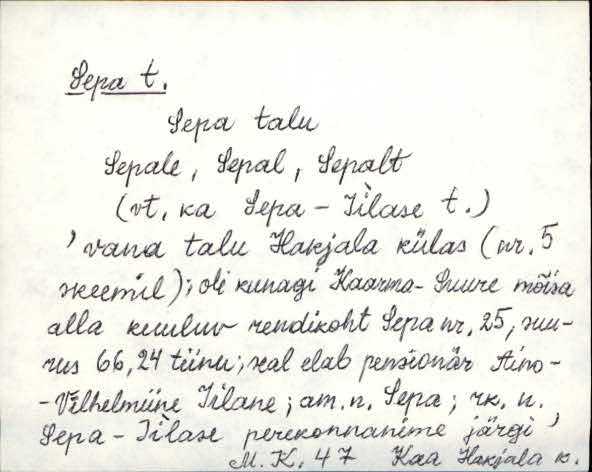 Sepa t.
Sepa talu
Sepale, Sepal, Sepalt
(vt. ka Sepa - Iìlase t.)
'vana talu Hakjala külas (nr. 5
skeemil); oli kunagi Kaarma-Suure mõisa
alla kuuluv rendikoht Sepa nr. 25, suu-
rus 66,24 tiinu; seal elab pensionär Aino-
-Vilhelmiine Iilane; am. n. Sepa; rk. n.
Sepa - Iìlase perekonnanime järgi'
M. K. 47 Kaa Hakjala k.